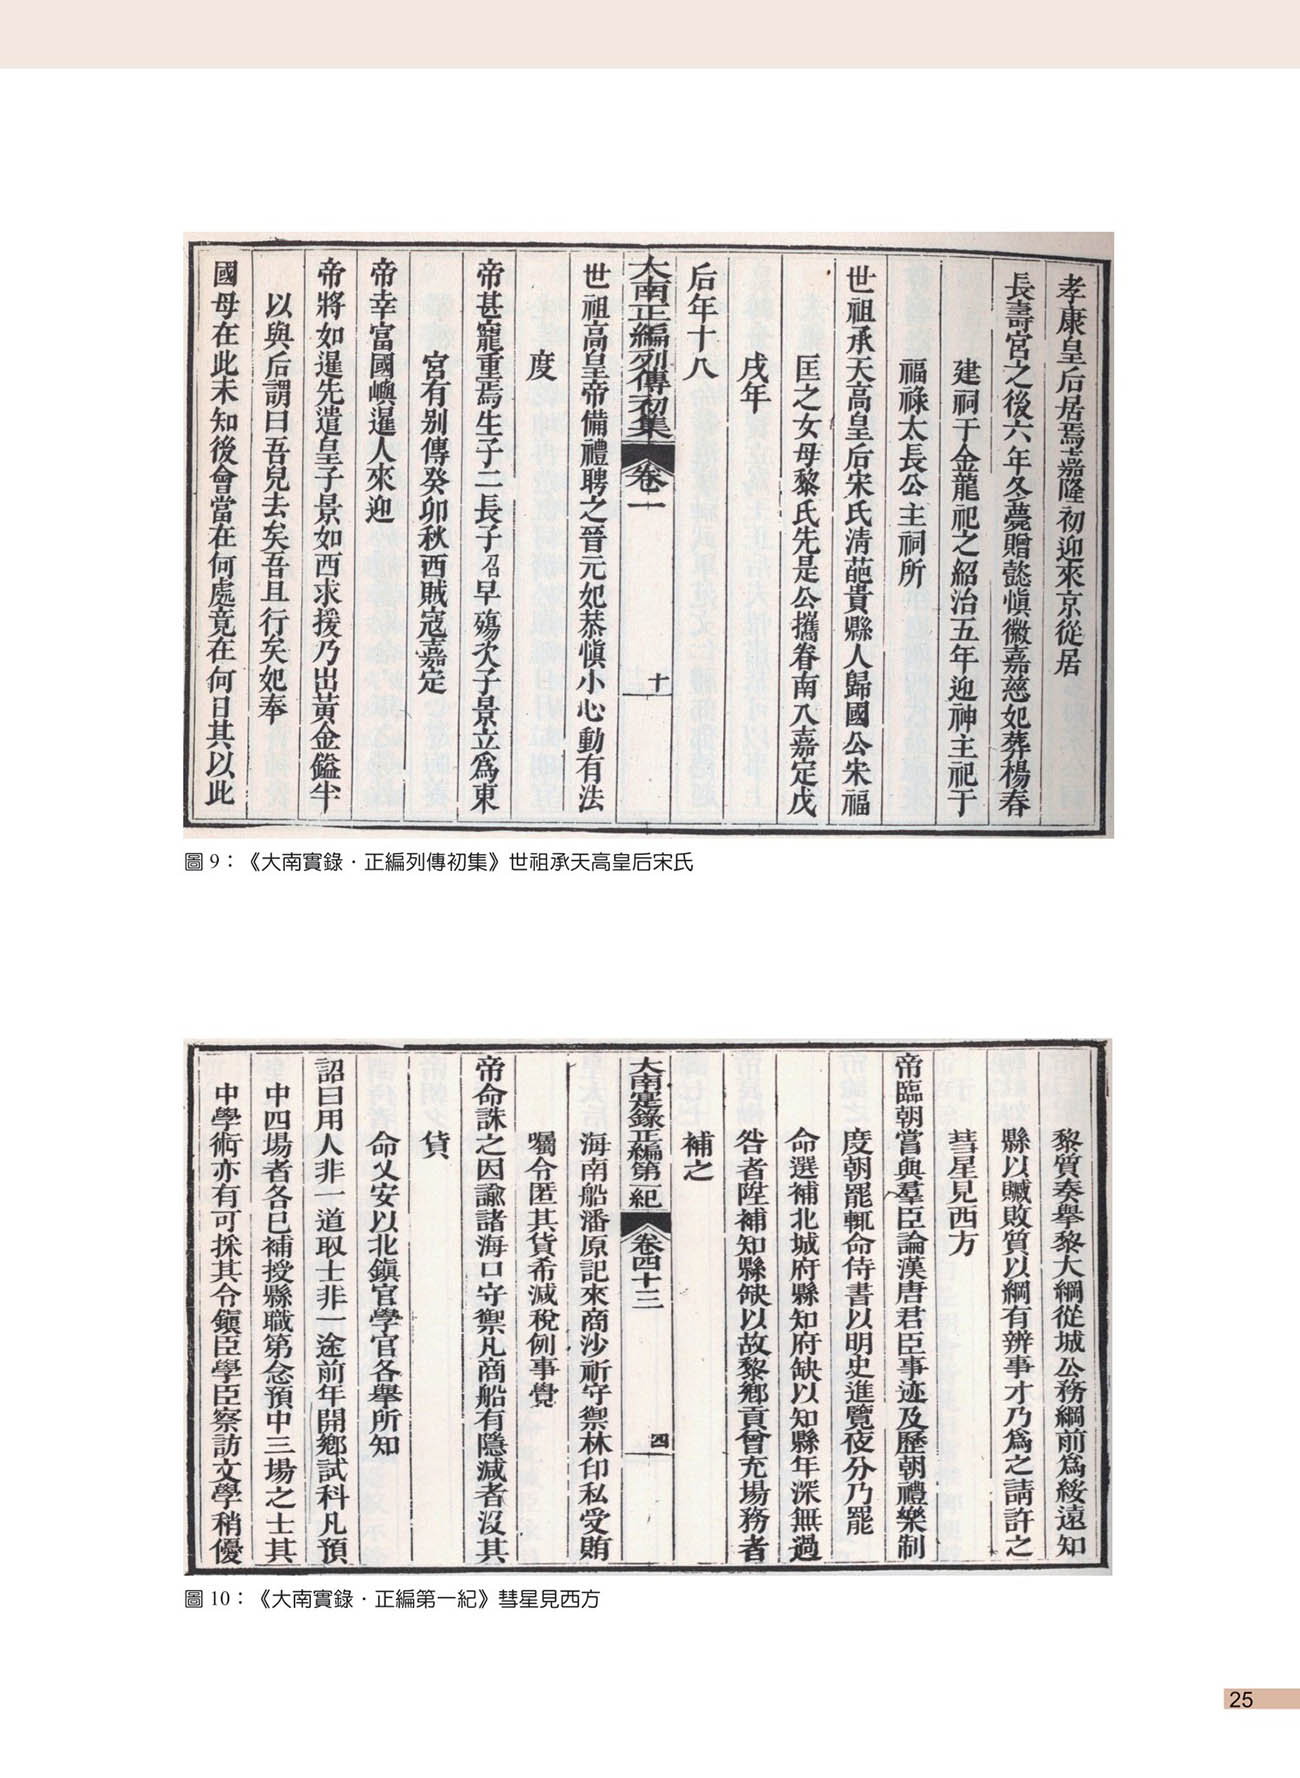 孝康皇后居焉嘉隆初迎來京從居
長壽宮之後六年冬薨贈懿慎徽嘉慈妃葬楊春
建祠于金龍祀之紹治五年迎神主祀于
福祿太長公主祠所
世祖承天高皇后宋氏淸葩貴縣人歸國公宋福
匡之女母黎氏先是公攜眷南入嘉定戊
戌年
后年十八
大南正編列傳初集 卷一 十
世祖高皇帝備禮聘之晉元妃恭慎小心動有法
度
帝甚寵重焉生子二長子昭早殤次子景立爲東
宮有别傳癸卯秋西賊寇嘉定
帝幸富國嶼暹人來迎
帝將如暹先遣皇子景如西求援乃出黃金鎰半
以與后謂曰吾兒去矣吾且行矣妃奉
國母在此未知後會當在何處竟在何日其以此
圖 9：《大南實錄．正編列傳初集》世祖承天高皇后宋氏
黎質奏舉黎大綱從城公務綱前爲綏遠知
縣以贓敗質以綱有辨事才乃爲之請許之
彗星見西方
帝臨朝嘗與羣臣論漢唐君臣事迹及歷朝禮樂制
度朝罷輒命侍書以明史進覽夜分乃罷
命選補北城府縣知府缺以知縣年深無過
咎者陞補知縣缺以故黎鄉貢曾充場務者
補之
大南寔錄正編第一紀 卷四十三 四
海南船潘原記來商沙祈守禦林印私受賄
囑令匿其貨希減稅例事覺
帝命誅之因諭諸海口守禦凡商船有隱減者沒其
貨
命乂安以北鎭官學官各舉所知
詔曰用人非一道取士非一途前年開鄉試科凡預
中四場者各已補授縣職第念預中三場之士其
中學術亦有可採其令鎭臣學臣察訪文學稍優
圖 10：《大南實錄．正編第一紀》彗星見西方
25